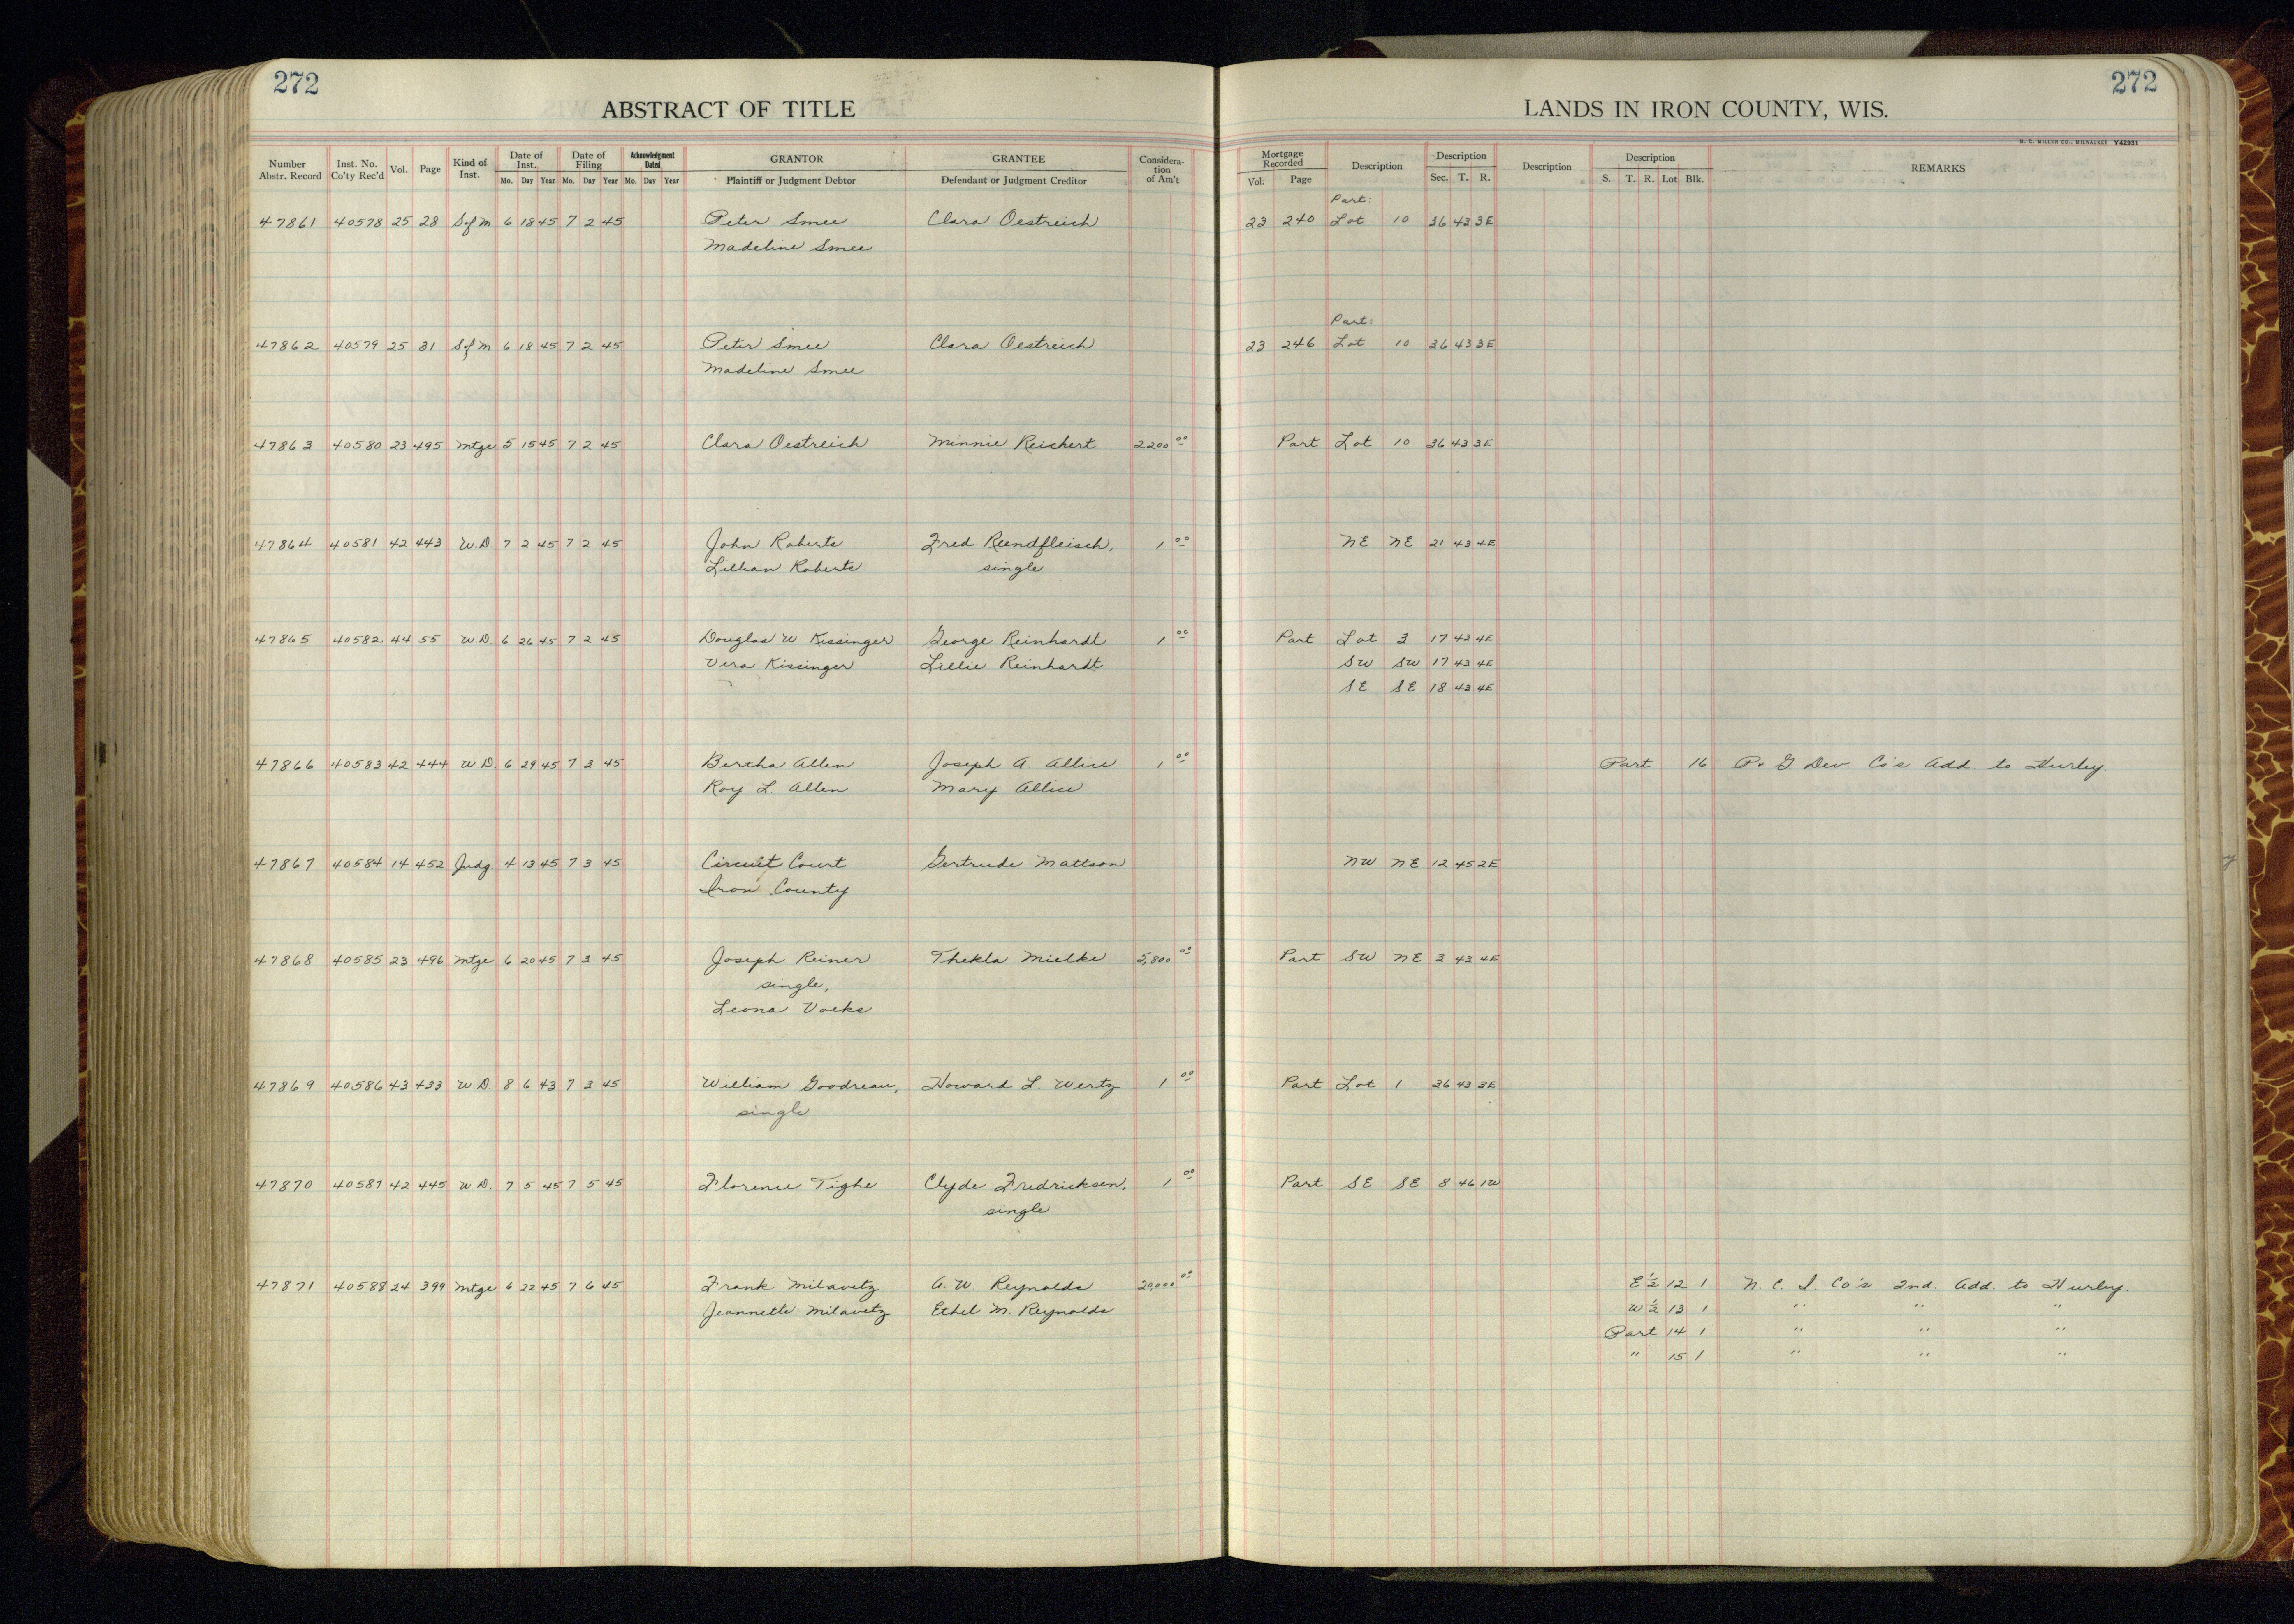 272
ABSTRACT OF TITLE
Number Abstr. Record Inst. No. Co'ty Rec'd Vol. Page Kind of Inst. Date of Inst. Mo. Day Year Date of Filing Mo. Day Year Acknowledgment Dated Mo. Day Year GRANTOR Plaintiff or Judgment Debtor GRANTEE Defendant or Judgment Creditor Considera-tion of Am't
47861 40578 25 28 S of M 6 18 45 7 2 45 Peter Smee Clara Oestreich
Madeline Smee
47862 40579 25 31 S of M 6 18 45 7 2 45 Peter Smee Clara Oestreich
Madeline Smee
47863 40580 23 495 Mtge 5 15 45 7 2 45 Clara Oestreich Minnie Reichert 2200 00
47864 40581 42 443 W.D. 7 2 45 7 2 45 John Roberts Fred Rundfleisch, 1 00
Lillian Roberts single
47865 40582 44 55 W.D. 6 26 45 7 2 45 Douglas W Kissinger George Reinhardt 1 00
Vera Kissinger Lillie Reinhardt
47866 40583 42 444 W.D. 6 29 45 7 3 45 Bertha Allen Joseph A. Allice 1 00
Roy L. Allen Mary Allice
47867 40584 14 452 Judg. 4 13 45 7 3 45 Circuit Court Gertrude Mattson
Iron County
47868 40585 23 496 Mtge 6 20 45 7 3 45 Joseph Reiner Thekla Mielke 5,800 00
single,
Leona Voeks
47869 40586 43 433 W.D. 8 6 43 7 3 45 William Goodreau, Howard L. Wertz 1 00
single
47870 40587 42 445 W.D. 7 5 45 7 5 45 Florence Tighe Clyde Fredricksen, 1 00
single
47871 40588 24 399 Mtge 6 22 45 7 6 45 Frank Milavetz A. W. Reynolds 20,000 00
Jeannette Milavetz Ethel M. Reynolds
272
LANDS IN IRON COUNTY, WIS.
H. C. MILLER CO., MILWAUKEE Y42931
Mortgage Recorded Vol. Page Description Description Sec. T. R. Description Description S. T. R. Lot Blk. REMARKS
Part:
23 240 Lot 10 36 43 3E
Part:
23 246 Lot 10 36 43 3E
Part Lot 10 36 43 3E
NE NE 21 43 4E
Part Lot 3 17 43 4E
SW SW 17 43 4E
SE SE 18 43 4E
Part 16 P. G. Dev Co's Add. to Hurley
NW NE 12 45 2E
Part SW NE 3 43 4E
Part Lot 1 36 43 3E
Part SE SE 8 46 1W
E 1/2 12 1 N. C. I. Co's 2nd. Add. to Hurley.
W 1/2 13 1 " " "
Part 14 1 " " "
" 15 1 " " "